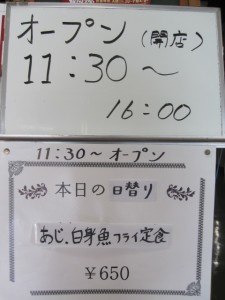 オープン(開店)
11:30〜
16:00
11:30〜オープン
本日の日替り
あじ、白身魚フライ定食
¥650